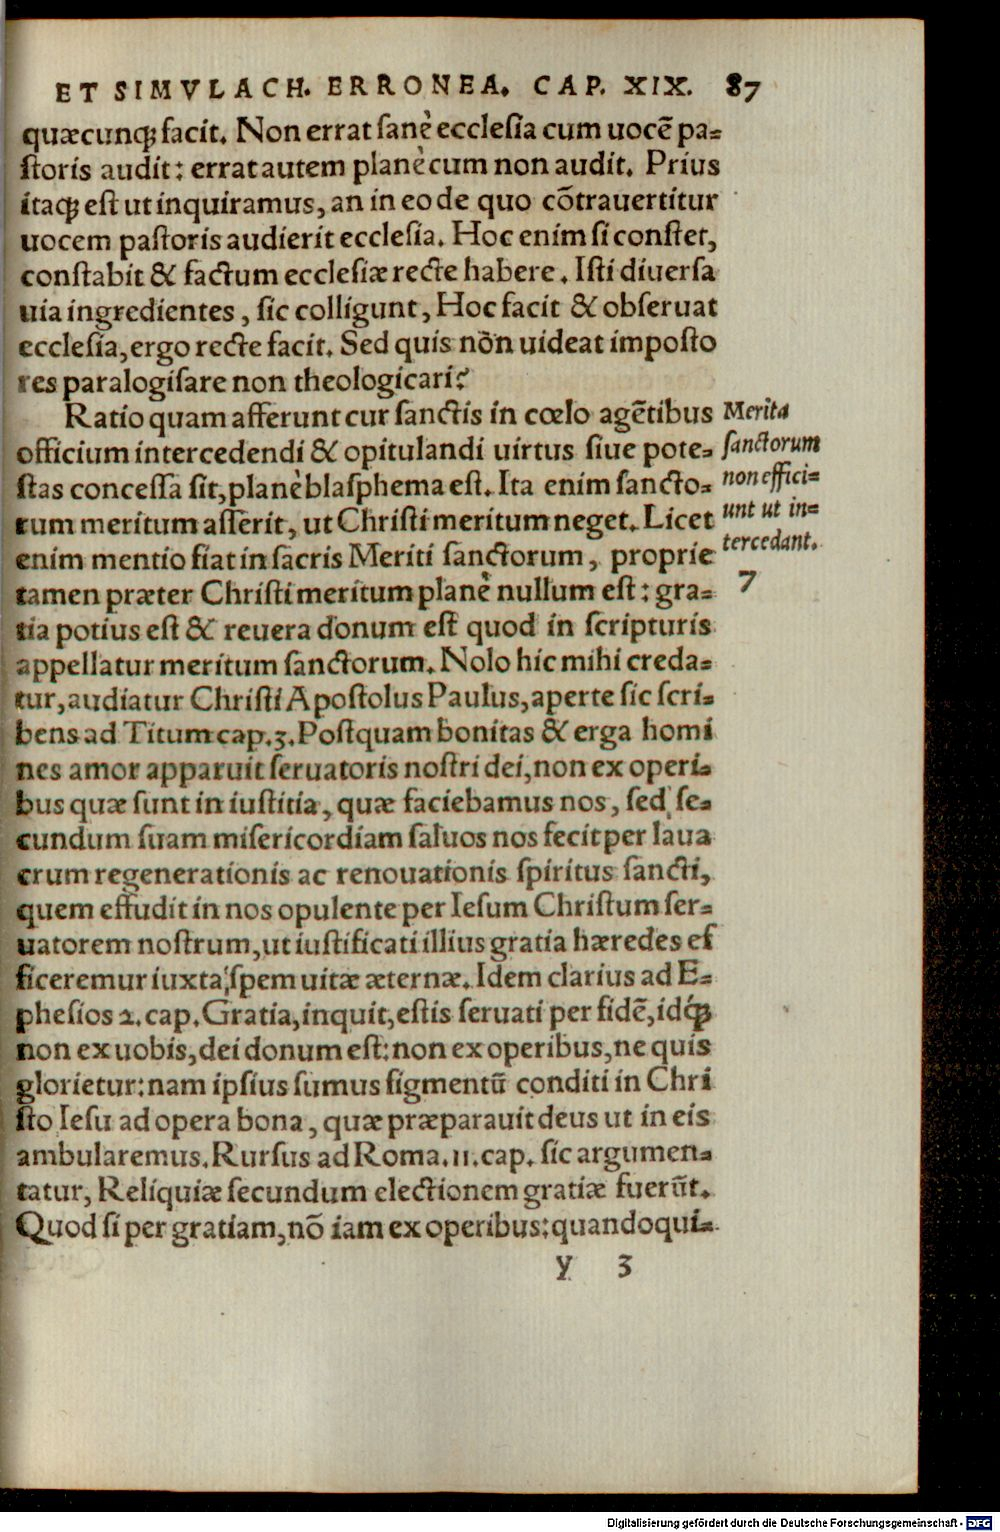 ET SIMVLACH. ERRONEA. CAP. XIX. 87
quæcunqꝫ facit. Non errat sanè ecclesia cum uocē pa=
storis audit: errat autem planè cum non audit. Prius
itaqꝫ est ut inquiramus, an in eo de quo cōtrauertitur
uocem pastoris audierit ecclesia. Hoc enim si constet,
constabit & factum ecclesiæ recte habere. Isti diuersa
uia ingredientes, sic colligunt, Hoc facit & obseruat
ecclesia, ergo recte facit. Sed quis nōn uideat imposto
res paralogisare non theologicari?
Ratio quam afferunt cur sanctis in cœlo agētibus
officium intercedendi & opitulandi uirtus siue pote=
stas concessa sit, planè blasphema est. Ita enim sancto=
rum meritum asserit, ut Christi meritum neget. Licet
enim mentio fiat in sacris Meriti sanctorum, proprie
tamen præter Christi meritum planè nullum est: gra=
tia potius est & reuera donum est quod in scripturis
appellatur meritum sanctorum. Nolo hic mihi creda=
tur, audiatur Christi Apostolus Paulus, aperte sic scri=
bens ad Titum cap.3. Postquam bonitas & erga homi
nes amor apparuit seruatoris nostri dei, non ex operi=
bus quæ sunt in iustitia, quæ faciebamus nos, sed se=
cundum suam misericordiam saluos nos fecit per laua
crum regenerationis ac renouationis spiritus sancti,
quem effudit in nos opulente per Iesum Christum ser=
uatorem nostrum, ut iustificati illius gratia hæredes ef
ficeremur iuxta spem uitæ æternæ. Idem clarius ad E=
phesios 2. cap. Gratia, inquit, estis seruati per fidē, idqꝫ
non ex uobis, dei donum est: non ex operibus, ne quis
glorietur: nam ipsius sumus figmentū conditi in Chri
sto Iesu ad opera bona, quæ præparauit deus ut in eis
ambularemus. Rursus ad Roma. 11. cap. sic argumen=
tatur, Reliquiæ secundum electionem gratiæ fuerūt.
Quod si per gratiam, nō iam ex operibus: quandoqui=
y 3
Merita
sanctorum
non effici=
unt ut in=
tercedant.
7
Digitalisierung gefördert durch die Deutsche Forschungsgemeinschaft - DFG